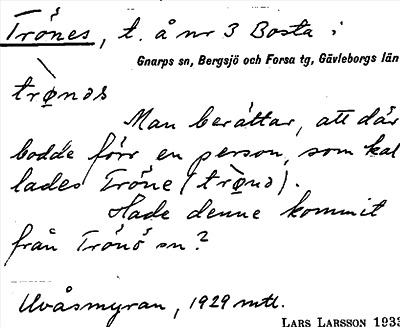 Trönes, t. å nr 3 Bosta i
Gnarps sn, Bergsjö och Forsa tg, Gävleborgs län
trø̀nəs
Man berättar, att där
bodde förr en person, som kal
lades Tröne (trø̀nə).
Hade denne kommit
från Trönö sn?
Uvåsmyran, 1929 mtl.
LARS LARSSON 1933